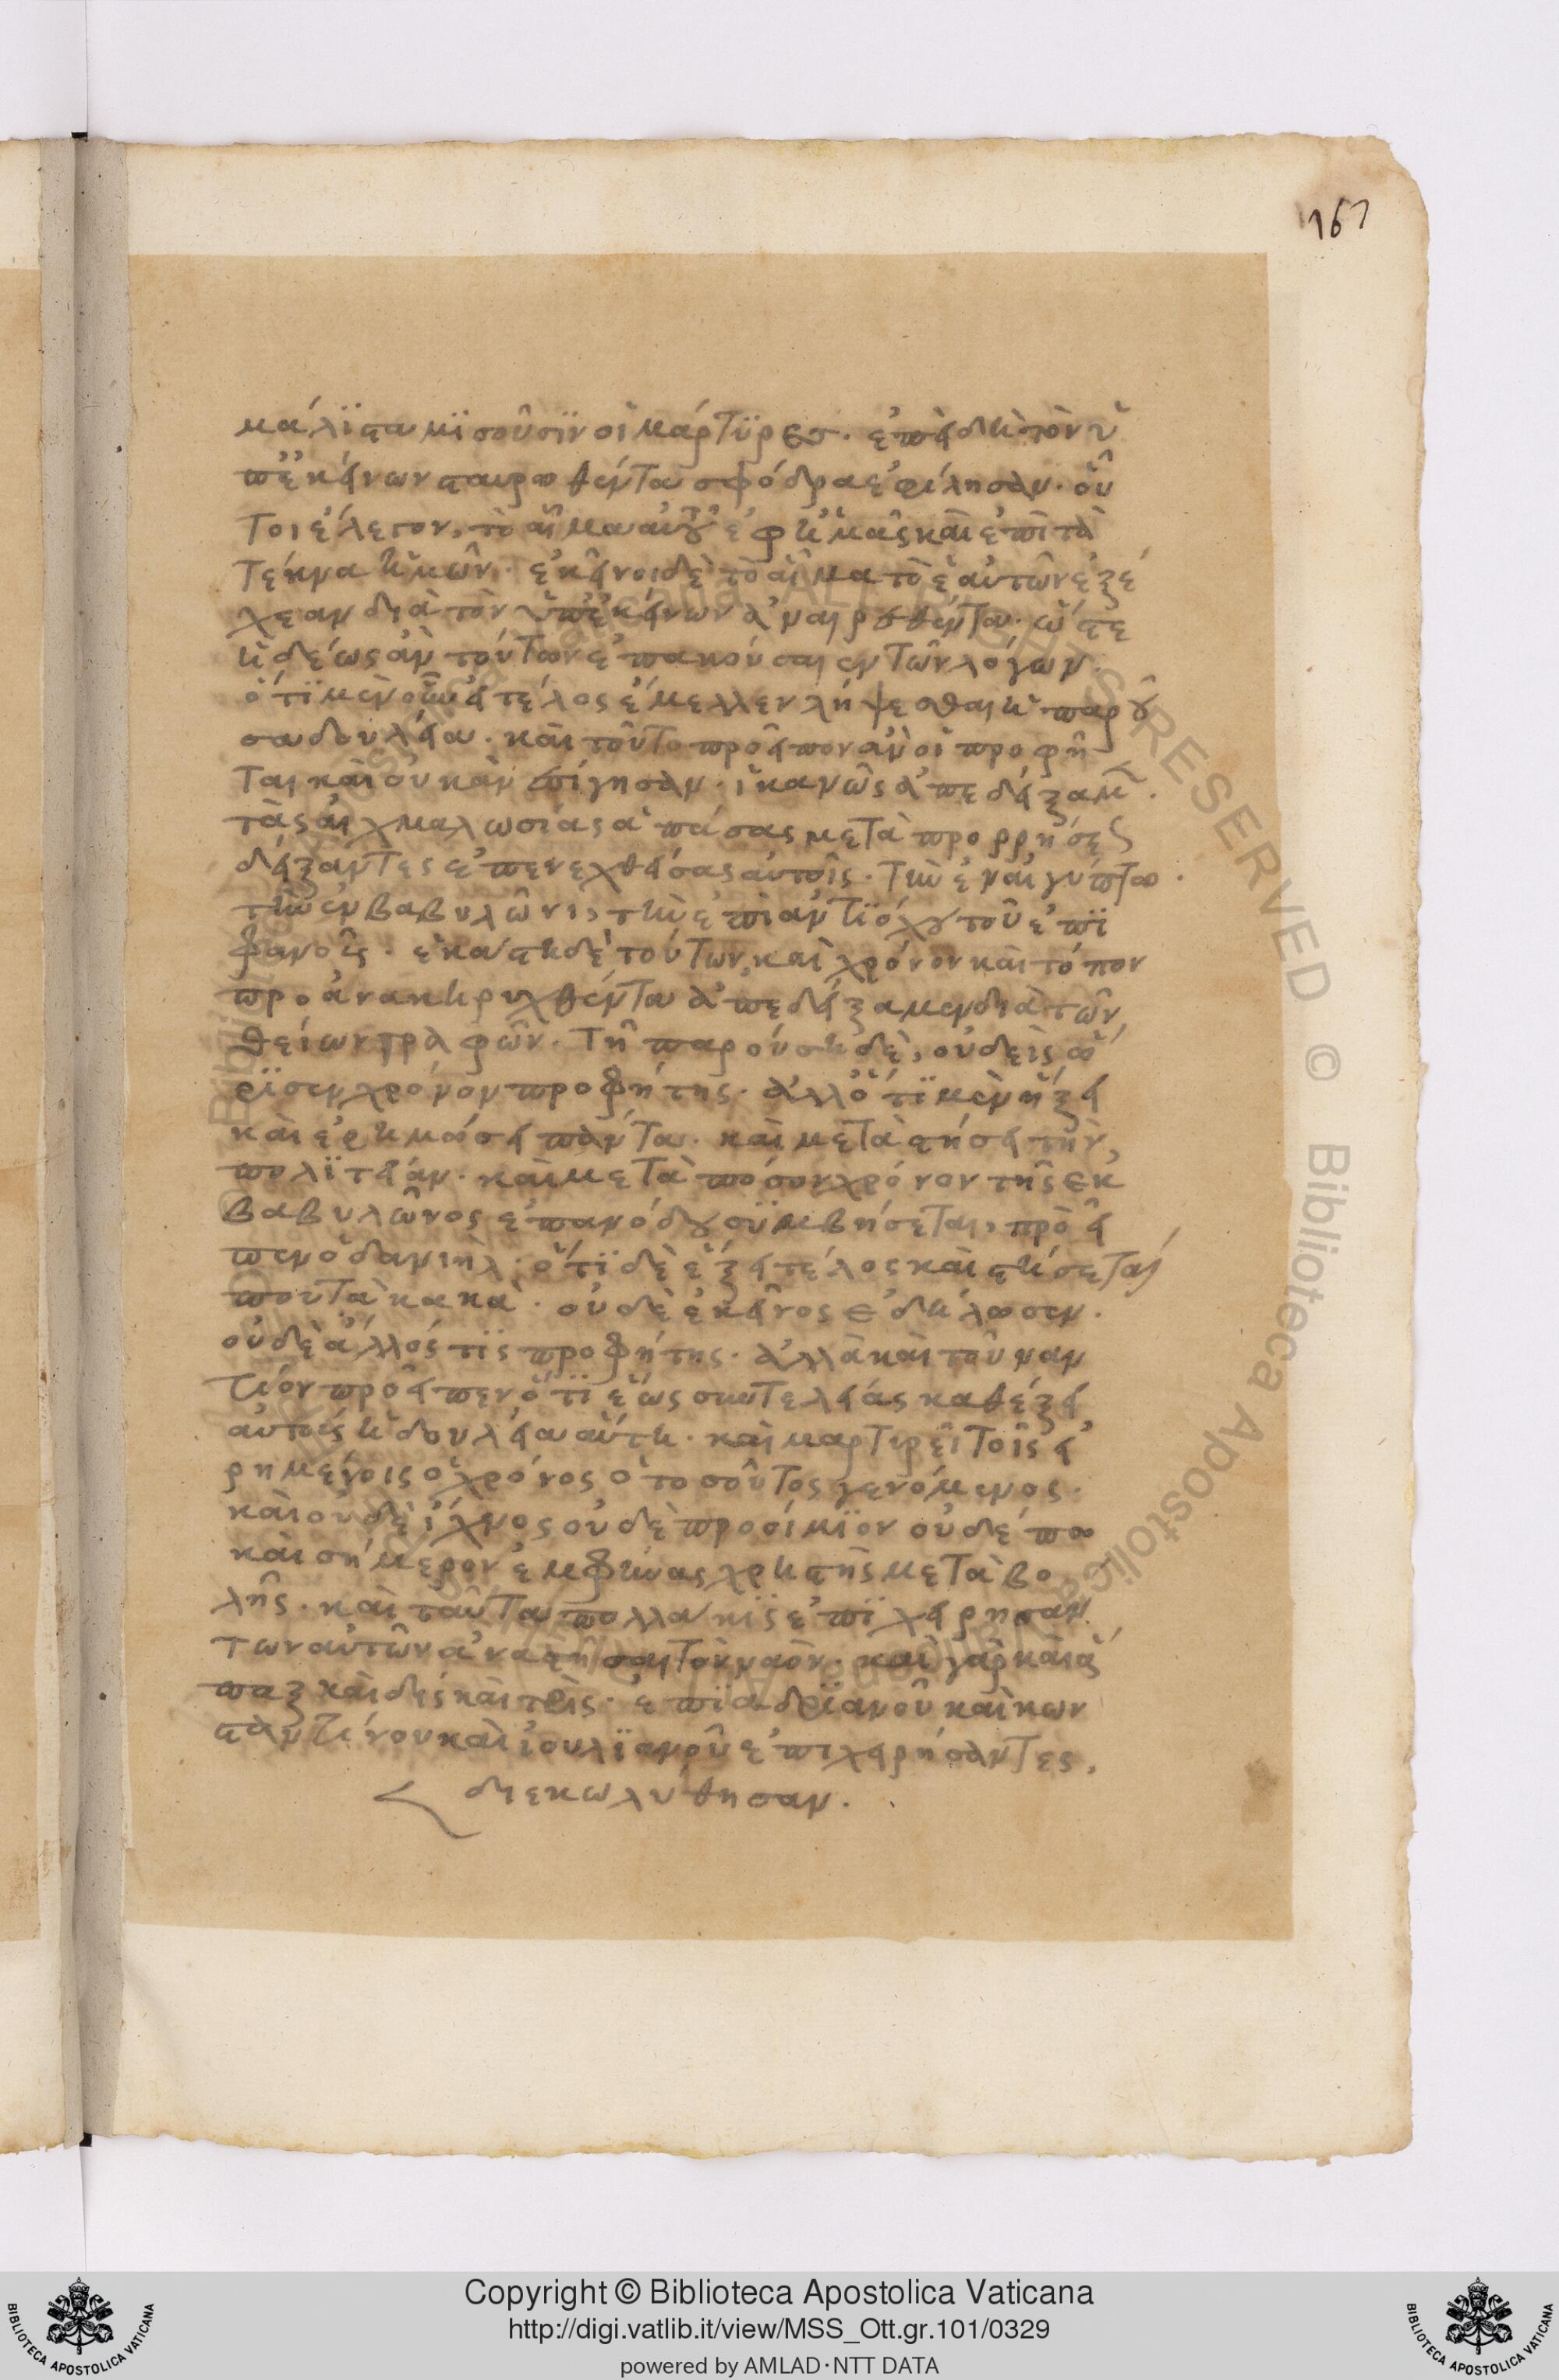 167
μάλϊστα μϊσοῦσϊν οἱ μάρτϋρες. ἐπειδὴ τὸν ὑ
π' ἐκείνων σταυρωθέντα σφόδρα ἐφίλησαν. οὗ
τοι ἔλεγον, τὸ αἷμα αὐτοῦ ἐφ' ἡμᾶς καὶ ἐπὶ τὰ
τέκνα ἡμῶν. ἐκεῖνοι δὲ τὸ αἷμα τὸ ἑαυτῶν ἐξέ
χεαν διὰ τὸν ὑπ' ἐκείνων ἀναιρεθέντα. ὥστε
ἡδέως ἂν τούτων ἐπακούσαιεν τῶν λόγων.
ὅτϊ μὲν οὖν εἰ τέλος ἔμελλεν λήψεσθαι ἡ παροῦ
σα δουλεία. καὶ τοῦτο προεῖπον ἂν οἱ προφῆ
ται καὶ οὐκ ἂν ἐσίγησαν. ἱκανῶς ἀπεδείξαμεν.
τὰς αἰχμαλωσίας ἁπάσας μετὰ προρρήσεως
δείξαντες ἐπενεχθείσας αὐτοῖς. τὴν ἐν αἰγύπτω.
τὴν ἐν βαβυλῶνι, τὴν ἐπὶ ἀντϊόχου τοῦ ἐπϊ
φανοῦς. ἑκάστη δὲ τούτων, καὶ χρόνον καὶ τόπον
προανακηρυχθέντα ἀπεδείξαμεν διὰ τῶν
θείων γραφῶν. τῆ παρούση δὲ, οὐδεὶς ὥ
ρϊσεν χρόνον προφήτης. ἀλλ' ὅτϊ μὲν ἥξει
καὶ ἐρημώσει πάντα. καὶ μεταστήσει τὴν
πολϊτείαν. καὶ μετὰ πόσον χρόνον τῆς ἐκ
βαβυλῶνος ἐπανόδου σϋμβήσεται, προεῖ
πεν ὁ δανιήλ. ὅτϊ δὲ ἕξει τέλος καὶ στήσεταί
που τὰ κακὰ. οὐδὲ ἐκεῖνος ἐδήλωσεν.
οὐδὲ ἄλλός τϊς προφήτης. ἀλλὰ καὶ τοὐναν
τίον προεῖπεν ὅτϊ ἕως συντελείας καθέξει
αὐτοὺς ἡ δουλεία αὕτη. καὶ μαρτυρεῖ τοῖς εἰ
ρημένοις ὁ χρόνος ὁ τοσοῦτος γενόμενος.
καὶ οὐδὲ ἴχνος οὐδὲ προοίμϊον οὐδέπω
καὶ σήμερον ἐμφήνας χρηστῆς μεταβο
λῆς. καὶ ταῦτα πολλάκϊς ἐπϊχειρησάν
των αὐτῶν ἀναστῆσαι τὸν ναόν. καὶ γὰρ καὶ ἅ
παξ καὶ δὶς καὶ τρὶς. ἐπϊ ἀδρϊανοῦ καὶ κων
σταντίνου καὶ ἰουλϊανοῦ ἐπιχειρήσαντες,
διεκωλύθησαν.
ALL RIGHTS RESERVED © Biblioteca Apostolica Vaticana
Copyright © Biblioteca Apostolica Vaticana
http://digi.vatlib.it/view/MSS_Ott.gr.101/0329
powered by AMLAD·NTT DATA
BIBLIOTECA APOSTOLICA VATICANA
BIBLIOTECA APOSTOLICA VATICANA